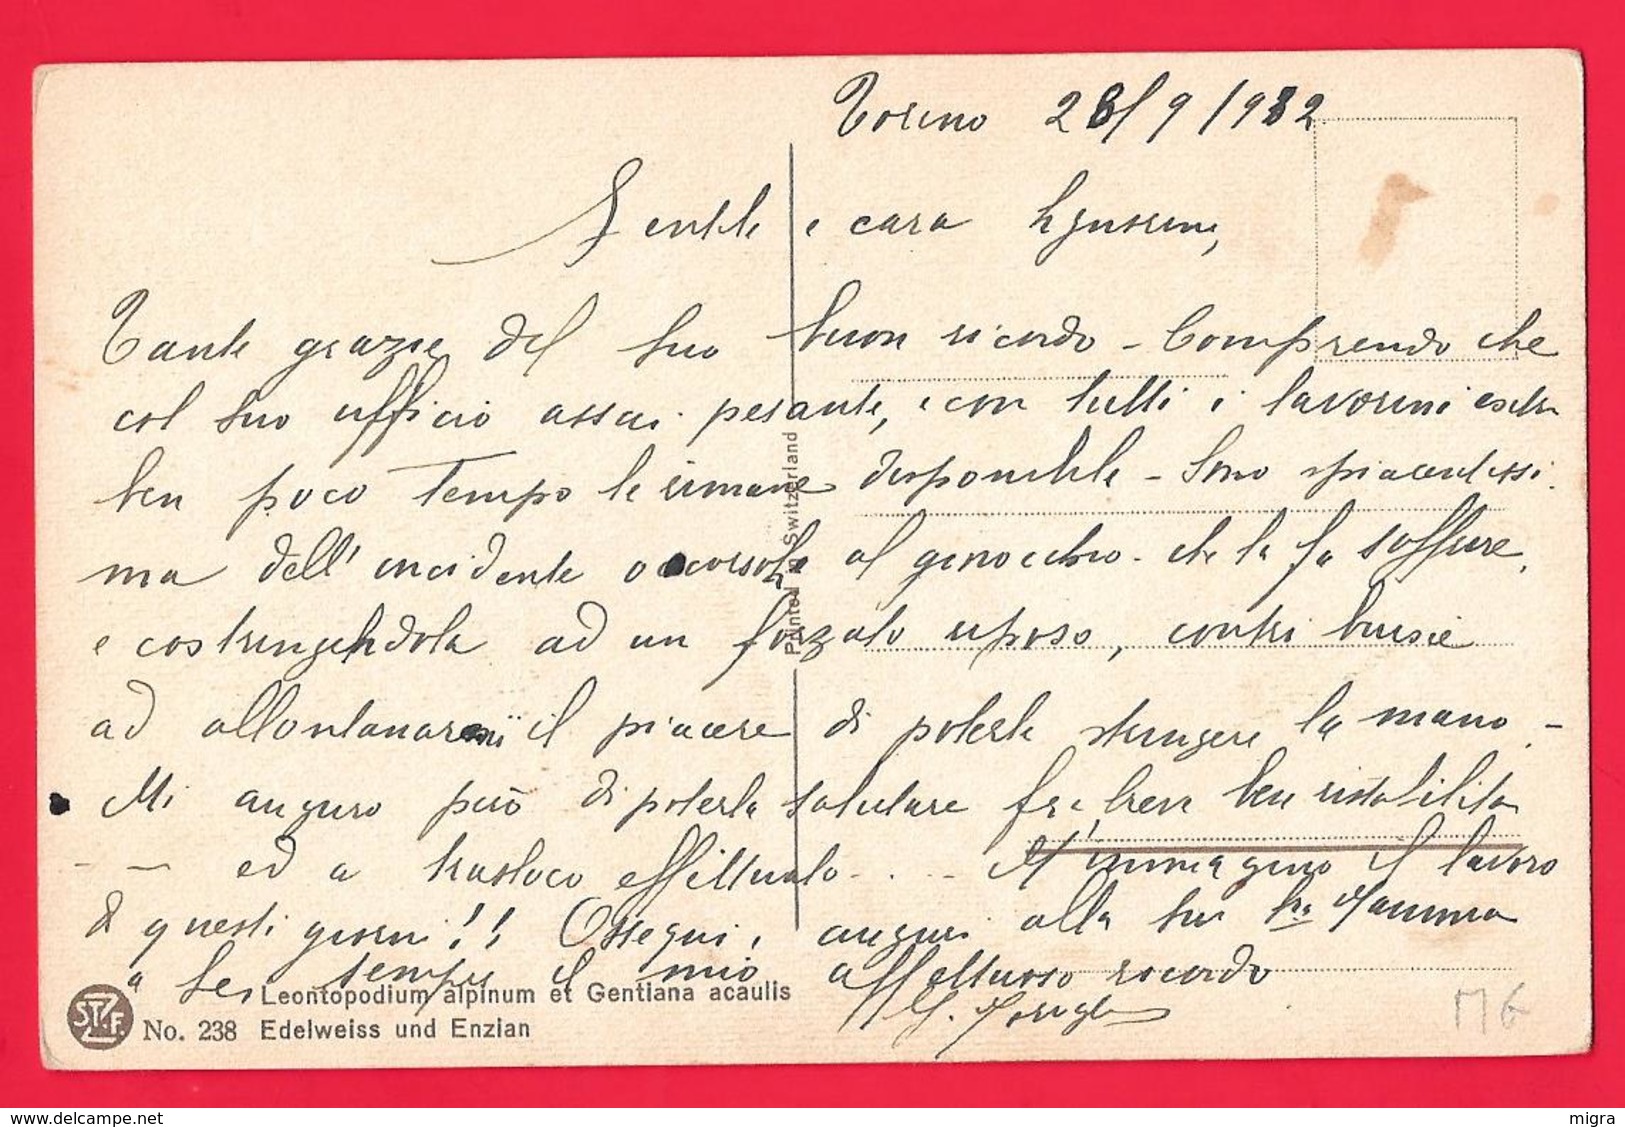 Torino 28/9/1932
Gentile e cara
Tante grazie del suo buon ricordo - Comprendo che
col suo ufficio assai pesante, e con tutti i lavorini extra
ben poco tempo le rimane disponibile - Sono spiacentissi
ma dell'incidente occorsole al ginocchio - che la fa soffrire,
e costringendola ad un forzato riposo, contribuisce
ad allontanare il piacere di poterle stringere la mano -
Mi auguro però di poterla salutare fra breve ben ristabilita
- - ed a trasloco effettuato - . . - M'immagino il lavoro
di questi giorni!! Ossequi, auguri alla sua Mamma
a Lei sempre il mio affettuoso ricordo
G.
MG
Printed in Switzerland
STZF.
Leontopodium alpinum et Gentiana acaulis
No. 238 Edelweiss und Enzian
www.delcampe.net
migra